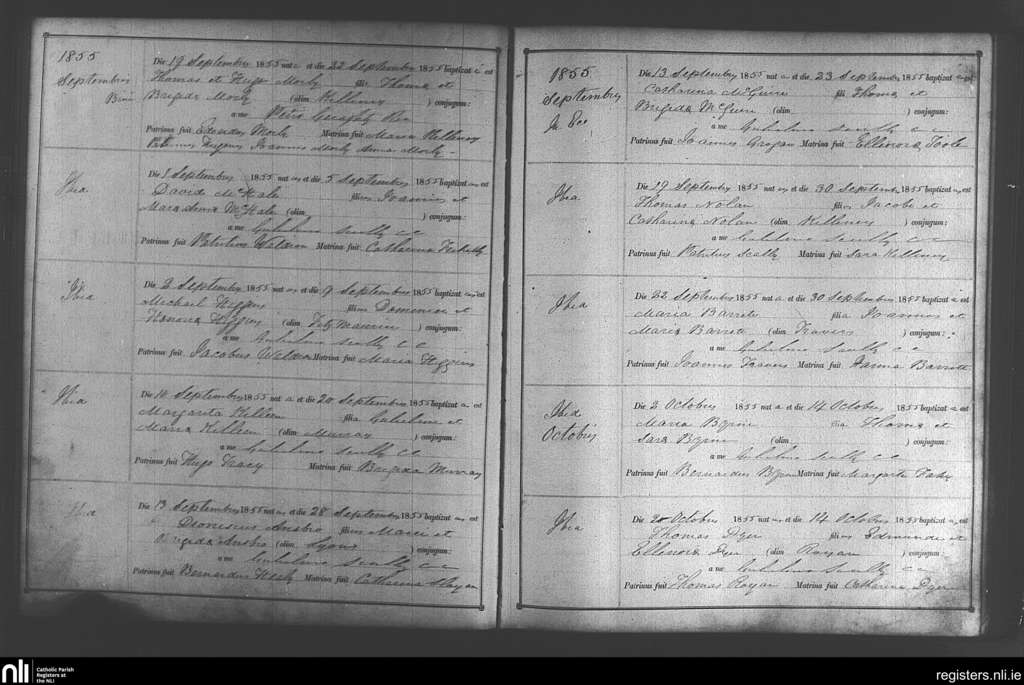 1855
Septembris
Die 19 Septembris 1855 nat et die 22 Septembris 1855 baptizat est
Thomas et Hugo Morly filii Thoma et
Brigida Morly (olim Killeney ) conjugum:
a me
Patrinus fuit Edwardus Morly Matrina fuit Maria Killeney
Joannes Morly Anna Morly
Ibid
Die 1 Septembris 1855 nat us et die 5 Septembris 1855 baptizat us est
David McHale filius Joannis et
McHale (olim ) conjugum:
a me Gulielmo Scully C C
Patrinus fuit Patritius Weldon Matrina fuit Catharina
Ibid
Die 2 Septembris 1855 nat us et die 9 Septembris 1855 baptizat us est
Michael Higgins filius Dominici et
Honoria Higgins (olim Fitzmaurice ) conjugum:
a me Gulielmo Scully C C
Patrinus fuit Jacobus Weldon Matrina fuit Maria Higgins
Ibid
Die Septembris 1855 nat a et die 20 Septembris 1855 baptizat a est
Margarita Killeen filia Gulielmi et
Maria Killeen (olim Murray ) conjugum:
a me Gulielmo Scully C C
Patrinus fuit Hugo Tracy Matrina fuit Brigida Murray
Ibid
Die 13 Septembris 1855 nat us et die 28 Septembris 1855 baptizat us est
Dionisius Ansbro filius Marci et
Brigida Ansbro (olim Lyons ) conjugum:
a me Gulielmo Scully C C
Patrinus fuit Bernardus Healy Matrina fuit Catharina
1855
Septembris
Die 13 Septembris 1855 nat a et die 23 Septembris 1855 baptizat a est
Catharina McGuire filia Thoma et
Brigida McGuire (olim ) conjugum:
a me Gulielmo Scully C C
Patrinus fuit Joannes Grogan Matrina fuit Ellenora Toole
Ibid
Die 19 Septembris 1855 nat us et die 30 Septembris 1855 baptizat us est
Thomas Nolan filius Jacobi et
Catharina Nolan (olim Killeney ) conjugum:
a me Gulielmo Scully C C
Patrinus fuit Patritius Scally Matrina fuit Sara Killeney
Ibid
Die 22 Septembris 1855 nat a et die 30 Septembris 1855 baptizat a est
Maria Barrett filia Joannis et
Maria Barrett (olim Travers ) conjugum:
a me Gulielmo Scully C C
Patrinus fuit Joannes Travers Matrina fuit Hanna Barrett
Ibid
Octobris
Die 2 Octobris 1855 nat a et die 14 Octobris 1855 baptizat a est
Maria Byrne filia Thoma et
Sara Byrne (olim ) conjugum:
a me Gulielmo Scully C C
Patrinus fuit Bernardus Byrne Matrina fuit Margarita
Ibid
Die Octobris 1855 nat us et die 14 Octobris 1855 baptizat us est
Thomas Dyer filius Edmundi et
Ellenora Dyer (olim Rogan ) conjugum:
a me Gulielmo Scully C C
Patrinus fuit Thomas Rogan Matrina fuit Catharina Dyer
nli Catholic Parish
Registers at
the NLI
registers.nli.ie